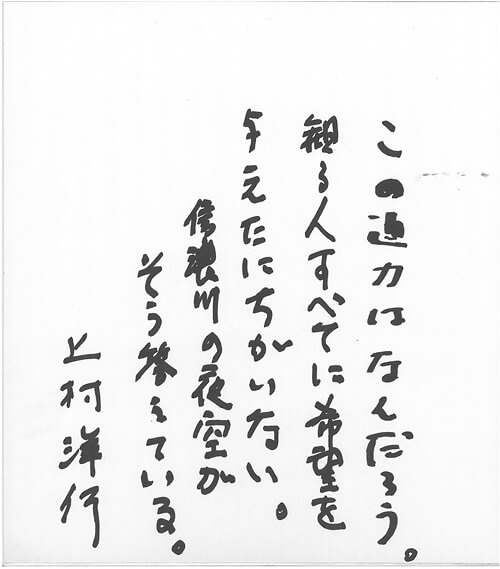 この迫力はなんだろう。
観る人すべてに希望を
与えたにちがいない。
信濃川の夜空が
そう答えている。
上村洋行